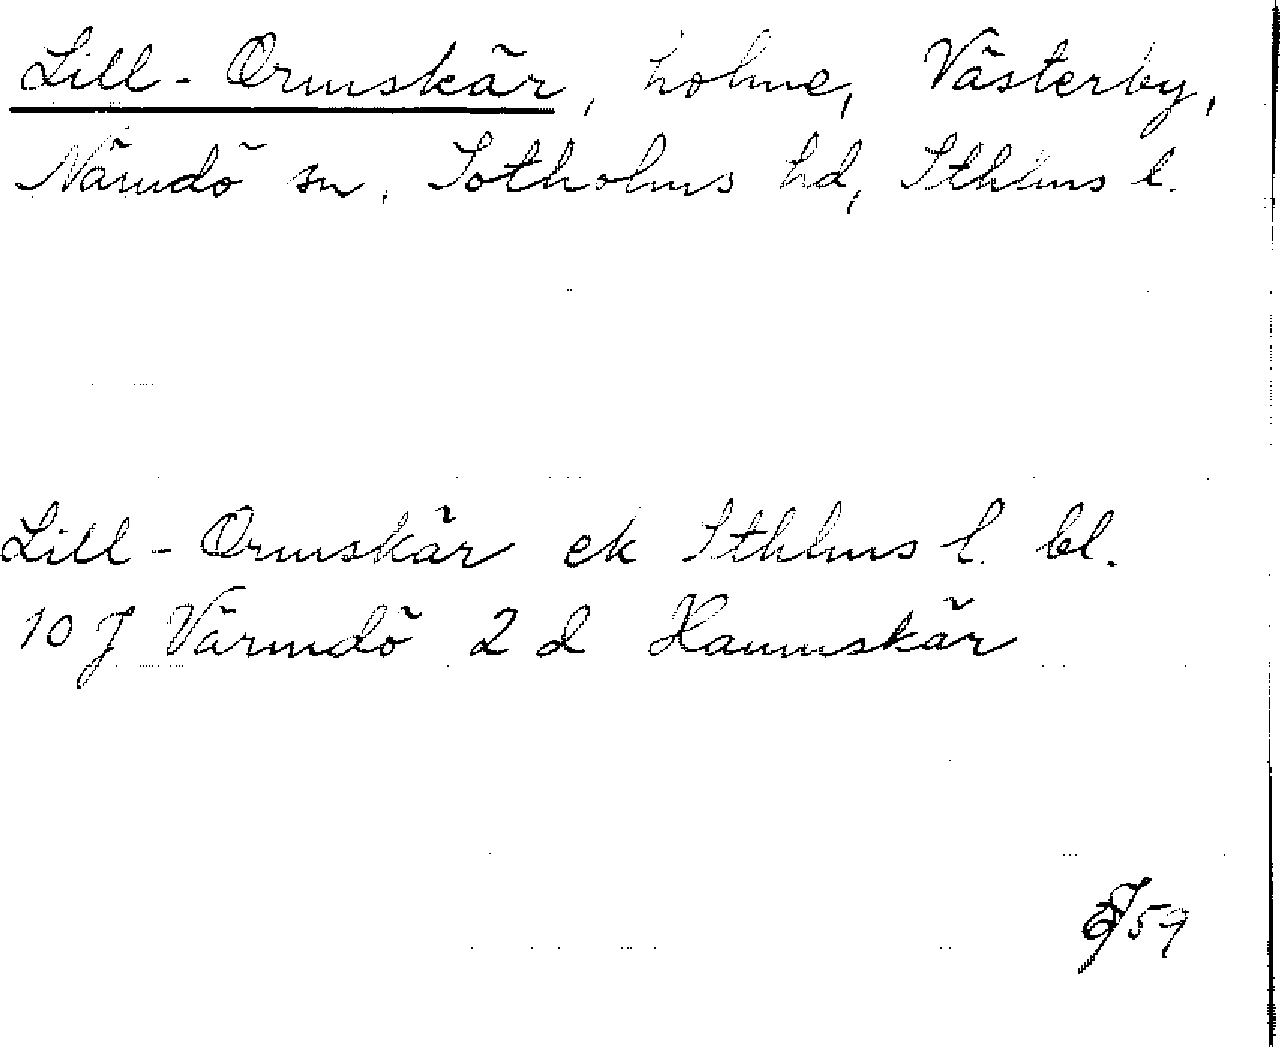 Lill-Ormskär, holme, Västerby,
Nämdö sn, Sotholms hd, Sthlms l.
Lill-Ormskär ek Sthlms l. bl.
10 J Värmdö 2 d Hamnskär
59